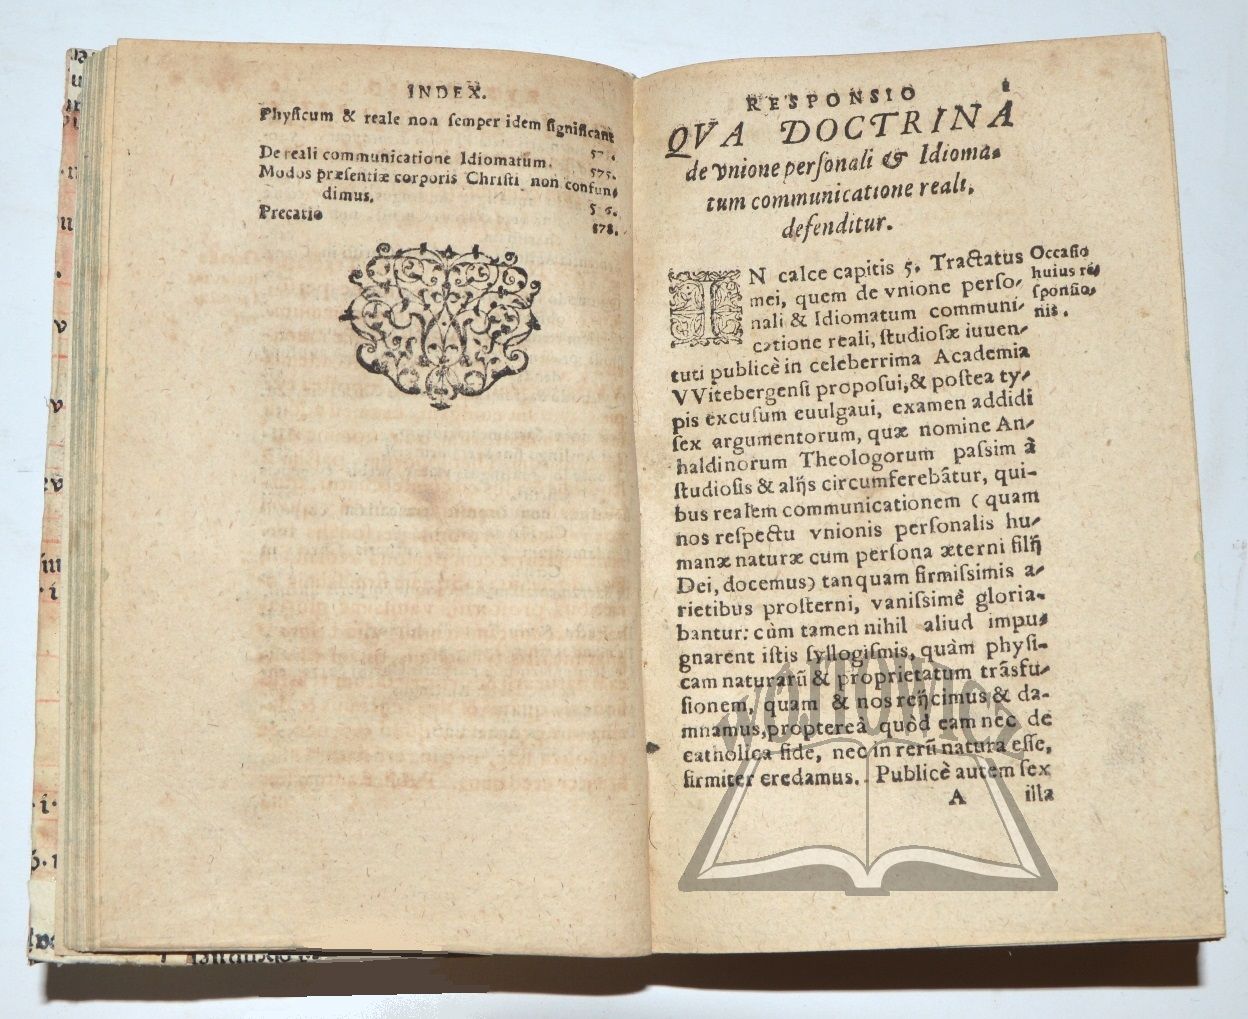 INDEX.
Phyſicum & reale non ſemper idem ſignificant
De reali communicatione Idiomatum. 575.
Modos præſentiæ corporis Chriſti non confun,
dimus.
Precatio 878.
RESPONSIO
QVA DOCTRINA
de vnione perſonali & Idioma,
tum communicatione reali,
defenditur.
IN calce capitis 5. Tractatus
mei, quem de vnione perſo,
nali & Idiomatum communi,
catione reali, ſtudioſæ iuuen,
tuti publicè in celeberrima Academia
VVitebergenſi propoſui, & poſtea ty,
pis excuſum euulgaui, examen addidi
ſex argumentorum, quæ nomine An,
haldinorum Theologorum paſsim à
ſtudioſis & alijs circumferebãtur, qui-
bus realem communicationem (quam
nos reſpectu vnionis perſonalis hu,
manæ naturæ cum perſona æterni filij
Dei, docemus) tanquam firmiſsimis a,
rietibus proſterni, vaniſsimè gloria-
bantur: cùm tamen nihil aliud impu,
gnarent iſtis ſyllogiſmis, quàm phyſi-
cam naturarũ & proprietatum trãsfu,
ſionem, quam & nos reijcimus & da-
mnamus, proptereà quòd eam nec de
catholica fide, nec in rerũ natura eſſe,
firmiter credamus. Publicè autem ſex
A illa
Occaſio
huius re,
ſponſio,
nis.
wojnowicz